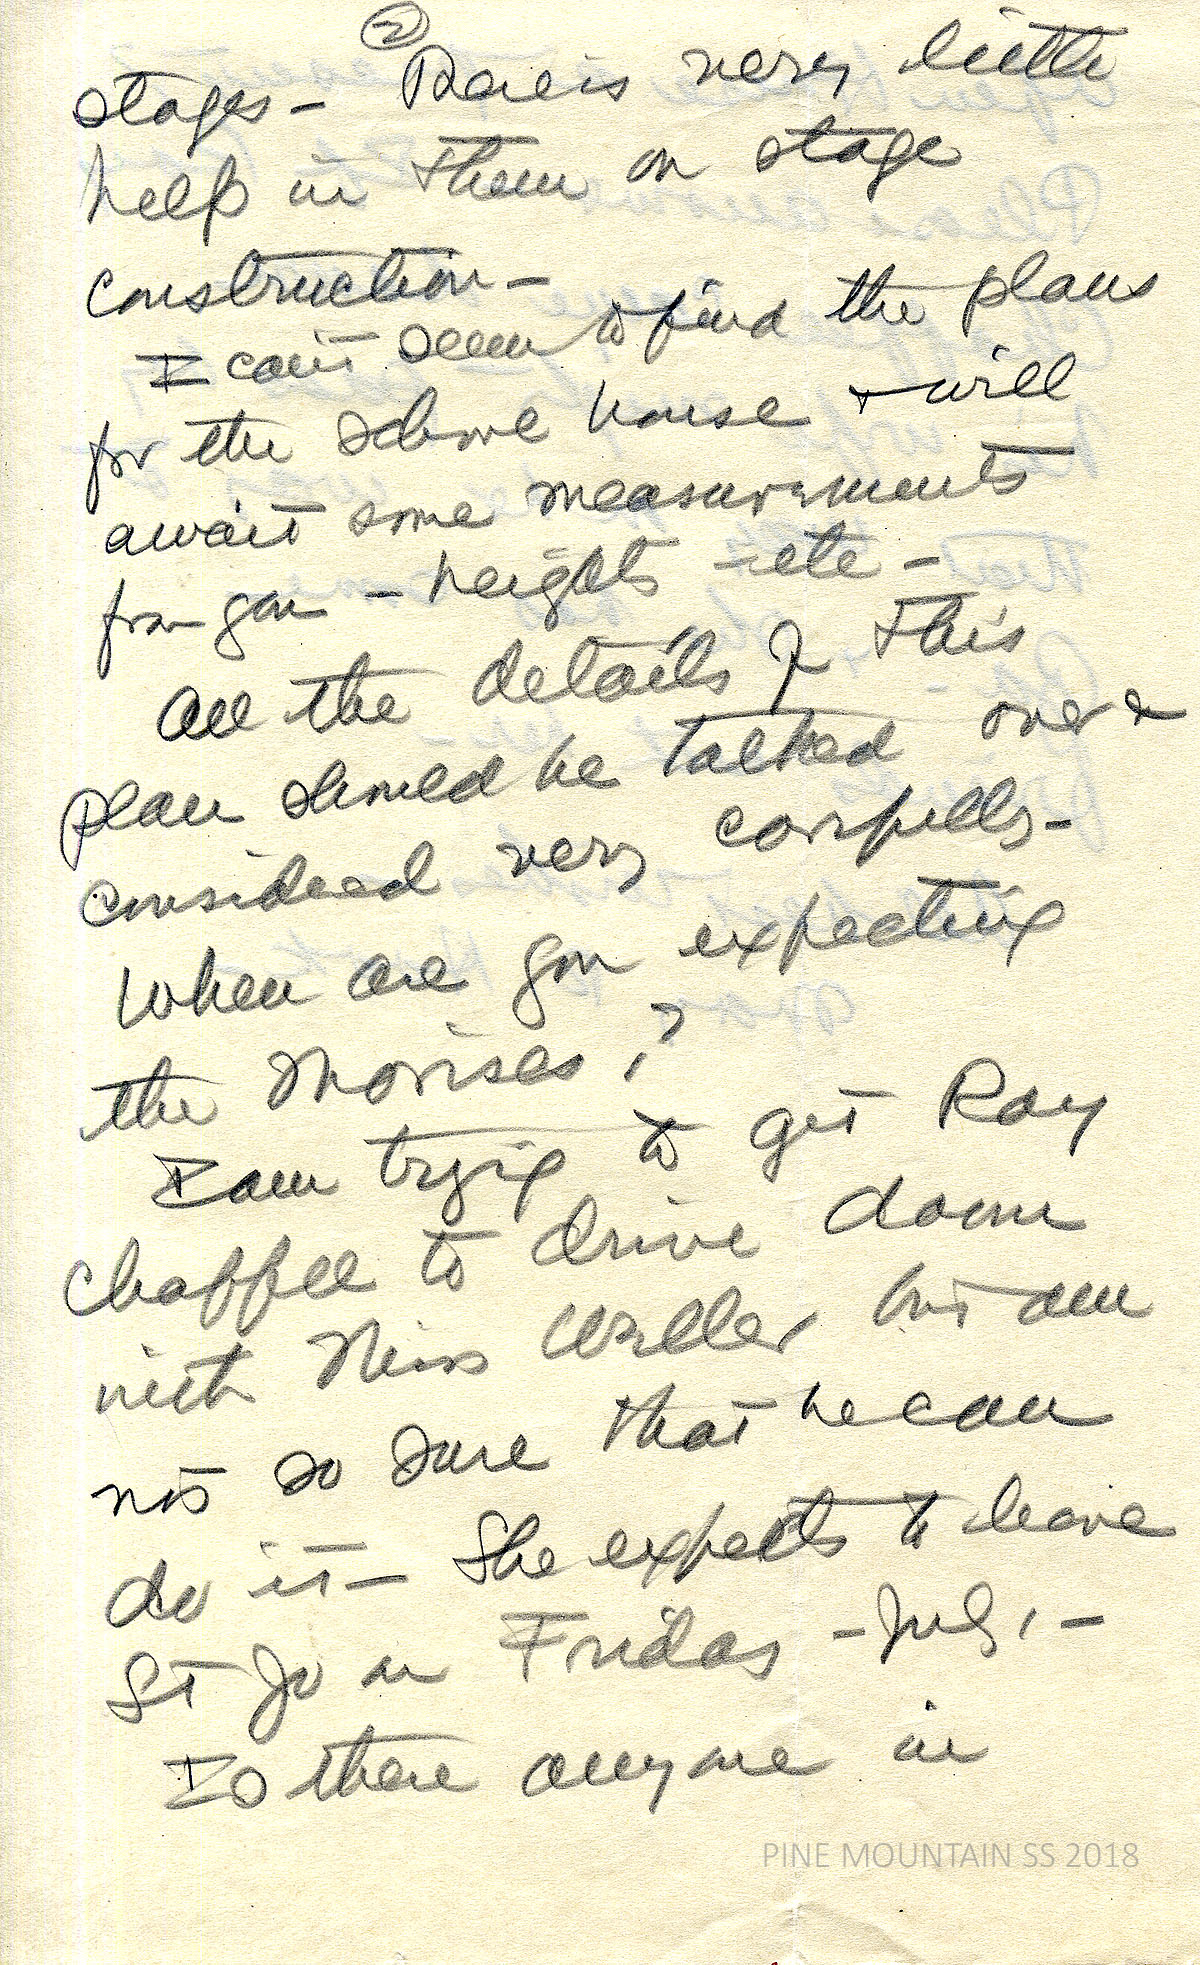 ②
stages – There is very little
help in them on stage
construction –
I can't seem to find the plans
for the school house & will
await some measurements
from you – heights – etc –
All the details of this
plan should be talked over &
considered very carefully –
When are you expecting
the Morises?
I am trying to get Ray
Chaffee to drive down
with Miss Weller but am
not so sure that he can
do it – She expects to leave
St Jo on Friday – July 1 –
Is there anyone in
PINE MOUNTAIN SS 2018